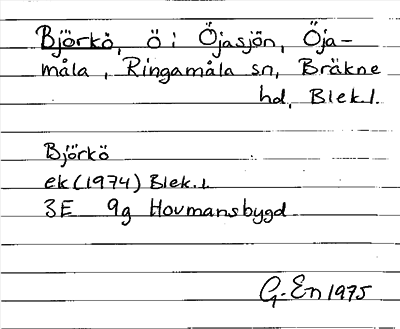 Björkö, ö i Öjasjön, Öja-
måla, Ringamåla sn, Bräkne
hd, Blek.l.
Björkö
ek (1974) Blek.l.
3E 9g Hovmansbygd
G. En 1975